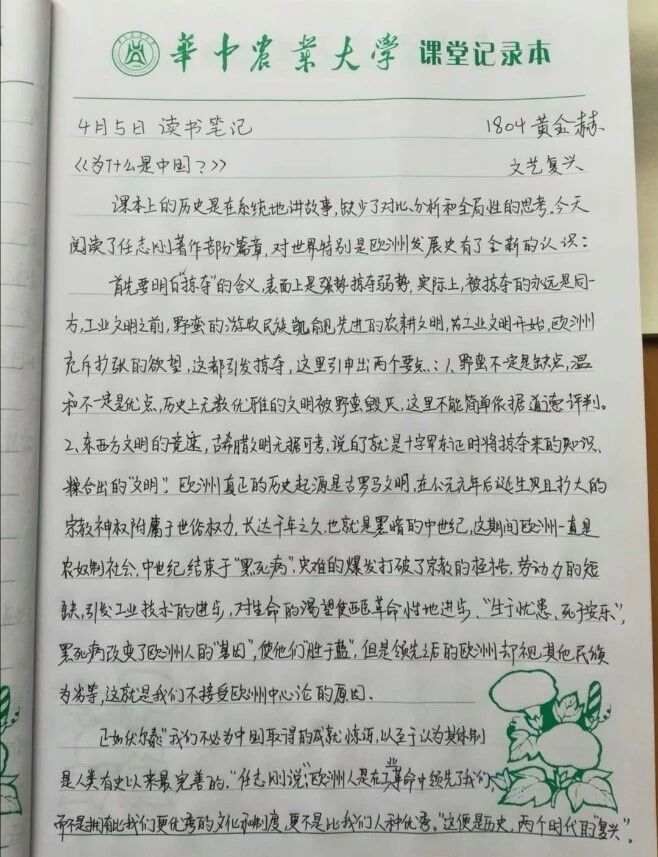 華中农業大学 课堂记录本
4月5日 读书笔记 1804 黄金赫
《为什么是中国？》 文艺复兴
课本上的历史是在系统地讲故事,缺少了对比分析和全局性的思考。今天
阅读了任志刚著作部分篇章,对世界特别是欧洲发展史有了全新的认识：
首先要明白“掠夺”的含义,表面上是强势掠夺弱势,实际上,被掠夺的永远是同一
方,工业文明之前,野蛮的游牧民族觊觎先进的农耕文明,而工业文明开始,欧洲
充斥扩张的欲望,这都引发掠夺,这里引申出两个要点：1、野蛮不一定是缺点,温
和不一定是优点,历史上无数优雅的文明被野蛮毁灭,这里不能简单依据道德评判。
2、东西方文明的竞速,古希腊文明无据可考,说的就是十字军东征时将掠夺来的知识,
糅合出的“文明”。欧洲真正的历史起源是古罗马文明,在公元元年后诞生且扩大的
宗教神权附属于世俗权力,长达千年之久,也就是黑暗的中世纪,这期间欧洲一直是
农奴制社会,中世纪结束于“黑死病”,灾难的爆发打破了宗教的桎梏,劳动力的短
缺,引发工业技术的进步,对生命的渴望使西医革命性地进步、“生于忧患、死于安乐”,
黑死病改变了欧洲人的“基因”,使他们“胜于蓝”,但是领先之后的欧洲却视其他民族
为劣等,这就是我们不接受欧洲中心论的原因、
正如伏尔泰“我们不必为中国取得的成就惊讶,以至于认为其体制
是人类有史以来最完善的。”任志刚说“欧洲人是在工业革命中领先了我们,
而不是拥有比我们更优秀的文化和制度,更不是比我们人种优秀。”这便是历史,两个时代的“复兴”。